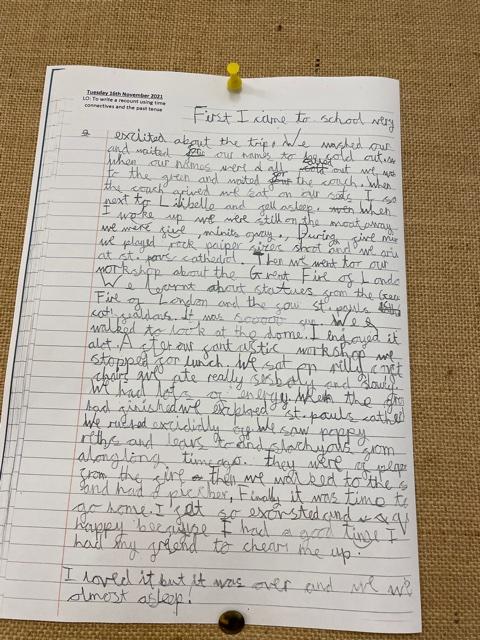 Tuesday 16th November 2021
LO: To write a recount using time
connectives and the past tense
First I came to school very
excited about the trip. We washed our
and waited for our names to be cold out.
when our names were cold out we
to the green and waited for the couch. When
the couch arived we sat on our
next to Lilibelle and fell asleep. when
I woke up we were still on the moatarway
we were five minits away. During five
we played rock paiper sizers shoot and we
at st. pauls cathedral. Then we went for our
workshop about the Great Fire of Londo
We learnt about statues from the Grea
Fire of London and the st. pauls
It was soooo fun. We
walked to look at the dome. I enjoyed it
alot. After our fantastic workshop we
stopped for lunch. We sat on
and ate really and
We had lots of energy. When the
had finished we explored st. pauls cathe
We rushed off. We saw poppy
and from
along time ago. They were of
from the fire Then we walked to the s
and had a Finally it was time to
go home. I felt so exorsted and
happy because I had a good time I
had my friend to chear me up.
I loved it but it was over and we we
almost asleep!